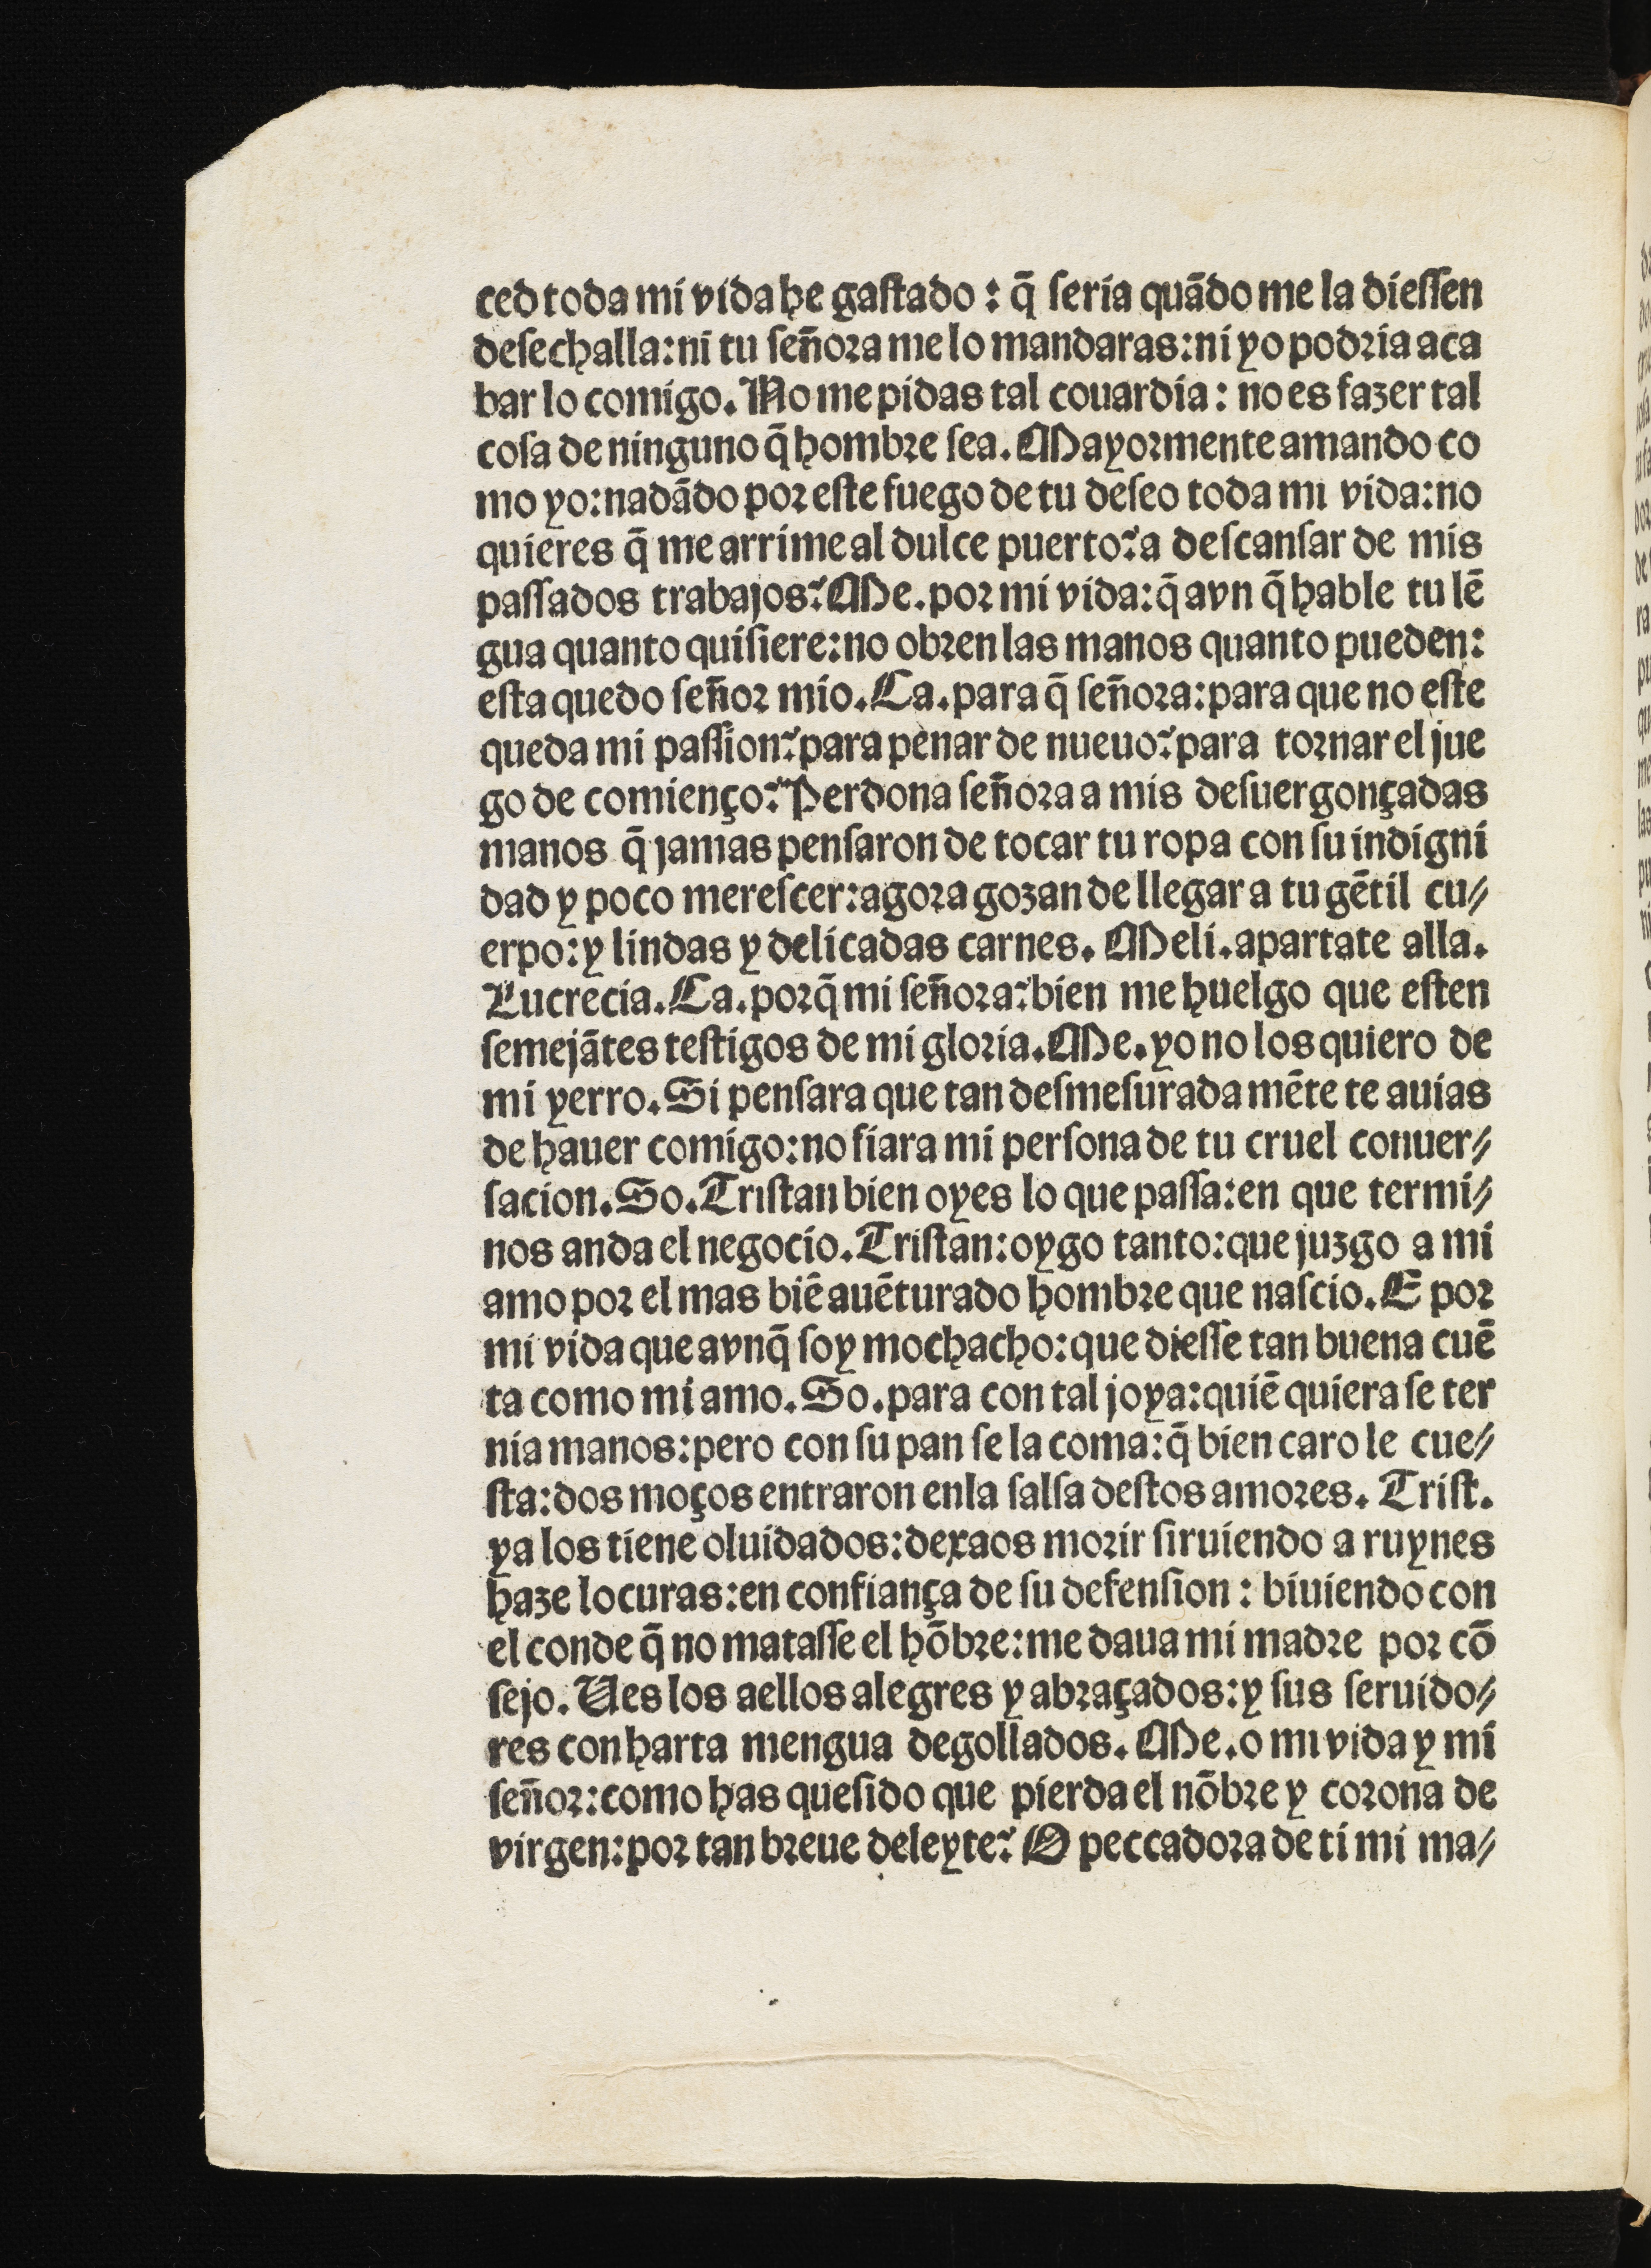 ced toda mi vida he gaſtado : q̃ ſeria quãdo me la dieſſen
deſechalla: ni tu ſeñora me lo mandaras: ni yo podria aca
bar lo comigo. No me pidas tal couardia : no es fazer tal
coſa de ninguno q̃ hombre ſea. Mayormente amando co
mo yo: nadãdo por eſte fuego de tu deſeo toda mi vida: no
quieres q̃ me arrime al dulce puerto? a deſcanſar de mis
paſſados trabajos? Me. por mi vida: q̃ avn q̃ hable tu lẽ
gua quanto quiſiere: no obren las manos quanto pueden:
eſta quedo ſeñor mio. Ca. para q̃ ſeñora: para que no eſte
queda mi paſſion? para penar de nueuo? para tornar el jue
go de comienço? Perdona ſeñora a mis deſuergonçadas
manos q̃ jamas penſaron de tocar tu ropa con ſu indigni
dad y poco mereſcer: agora gozan de llegar a tu gẽtil cu⸗
erpo: y lindas y delicadas carnes. Meli. apartate alla.
Lucrecia. Ca. porq̃ mi ſeñora? bien me huelgo que eſten
ſemejãtes teſtigos de mi gloria. Me. yo no los quiero de
mi yerro. Si penſara que tan deſmeſurada mẽte te auias
de hauer comigo: no fiara mi perſona de tu cruel conuer⸗
ſacion. So. Triſtan bien oyes lo que paſſa: en que termi⸗
nos anda el negocio. Triſtan: oygo tanto: que juzgo a mi
amo por el mas biẽ auẽturado hombre que naſcio. E por
mi vida que avnq̃ ſoy mochacho: que dieſſe tan buena cuẽ
ta como mi amo. So. para con tal joya: quiẽ quiera ſe ter
nia manos: pero con ſu pan ſe la coma: q̃ bien caro le cue⸗
ſta: dos moços entraron enla ſalſa deſtos amores. Triſt.
ya los tiene oluidados: dexaos morir ſiruiendo a ruynes
haze locuras: en confiança de ſu defenſion : biuiendo con
el conde q̃ no mataſſe el hõbre: me daua mi madre por cõ
ſejo. Ues los aellos alegres y abraçados: y ſus ſeruido⸗
res con harta mengua degollados. Me. o mi vida y mi
ſeñor: como has queſido que pierda el nõbre y corona de
virgen: por tan breue deleyte? O peccadora de ti mi ma⸗